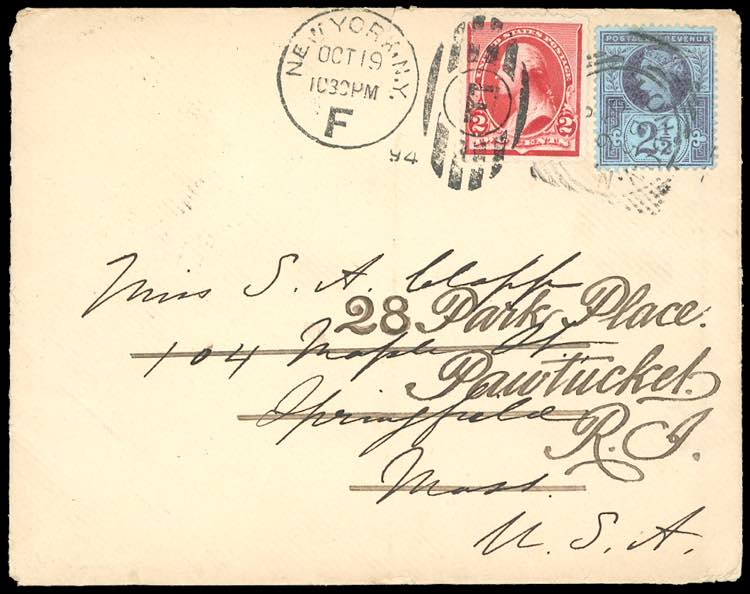 NEW YORK, N.Y.
OCT 19
1030PM
F
94
UNITED STATES POSTAGE
2 2
CENTS
POSTAGE & REVENUE
2½
Miss S. A. Clapp
28 Park Place.
104 Maple St
Pawtucket.
Springfield
R. I.
Mass.
U. S. A.